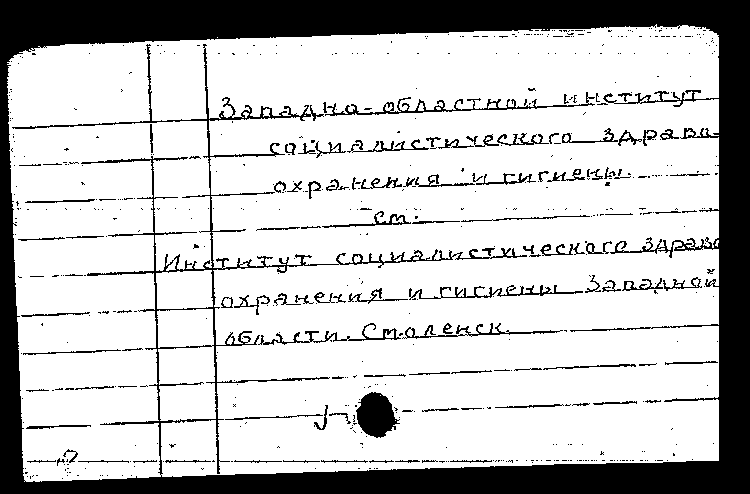 Западно-областной институт
социалистического здраво-
охранения и гигиены.
см.
Институт социалистического здраво
охранения и гигиены Западной
области. Смоленск.